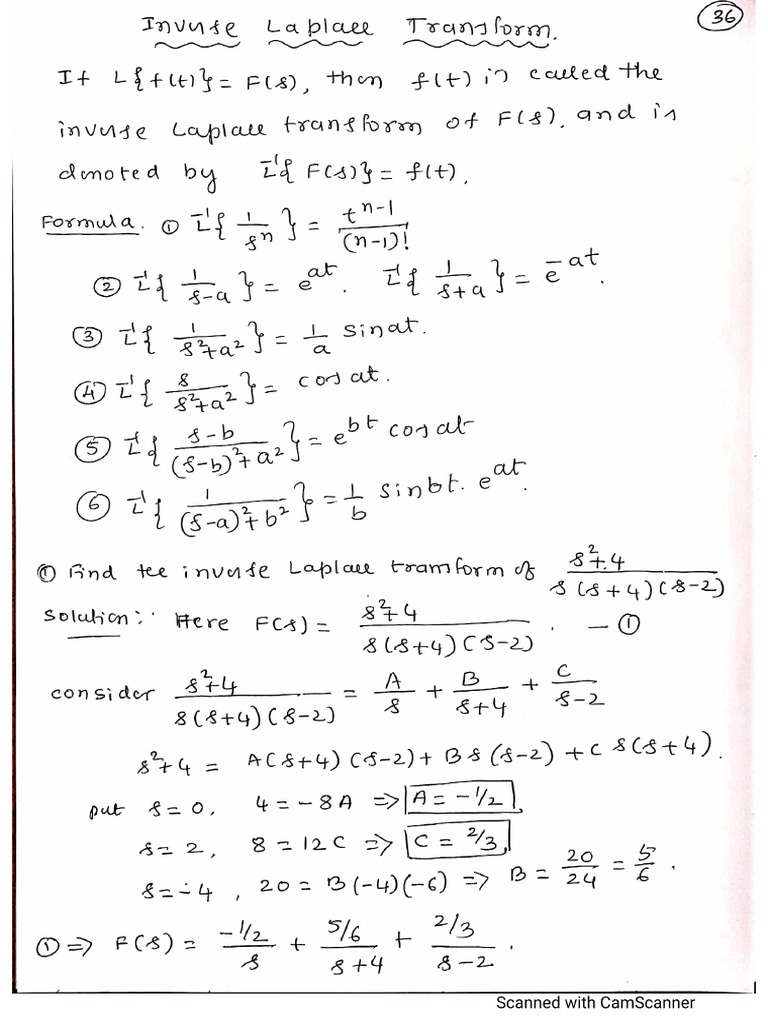 Inverse Laplace Transform.
36
If L{f(t)} = F(s), then f(t) is called the
inverse Laplace transform of F(s). and is
denoted by L⁻¹{F(s)} = f(t).
Formula. ① L⁻¹{1/sⁿ} = t^(n-1)/(n-1)!
② L⁻¹{1/(s-a)} = e^(at). L⁻¹{1/(s+a)} = e^(-at).
③ L⁻¹{1/(s²+a²)} = 1/a sinat.
④ L⁻¹{s/(s²+a²)} = cosat.
⑤ L⁻¹{(s-b)/((s-b)²+a²)} = e^(bt) cosat
⑥ L⁻¹{1/((s-a)²+b²)} = 1/b sinbt. e^(at).
① Find the inverse Laplace transform of (s²+4)/(s(s+4)(s-2))
Solution:- Here F(s) = (s²+4)/(s(s+4)(s-2)). — ①
consider (s²+4)/(s(s+4)(s-2)) = A/s + B/(s+4) + C/(s-2)
s²+4 = A(s+4)(s-2) + Bs(s-2) + Cs(s+4).
put s=0, 4 = -8A => A = -1/2
s=2, 8 = 12C => C = 2/3
s=-4, 20 = B(-4)(-6) => B = 20/24 = 5/6.
① => F(s) = (-1/2)/s + (5/6)/(s+4) + (2/3)/(s-2).
Scanned with CamScanner